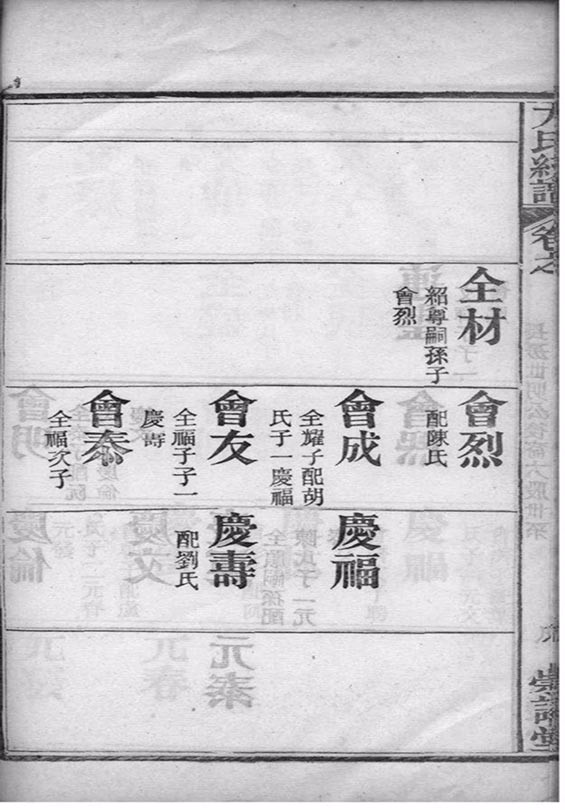 氏統譜
卷之
全材
紹粵嗣孫子
會烈
會烈
配陳氏
會成
全耀子配胡
氏子一慶福
會友
全福子子一
慶壽
會泰
全福次子
慶福
慶壽
配劉氏
元泰